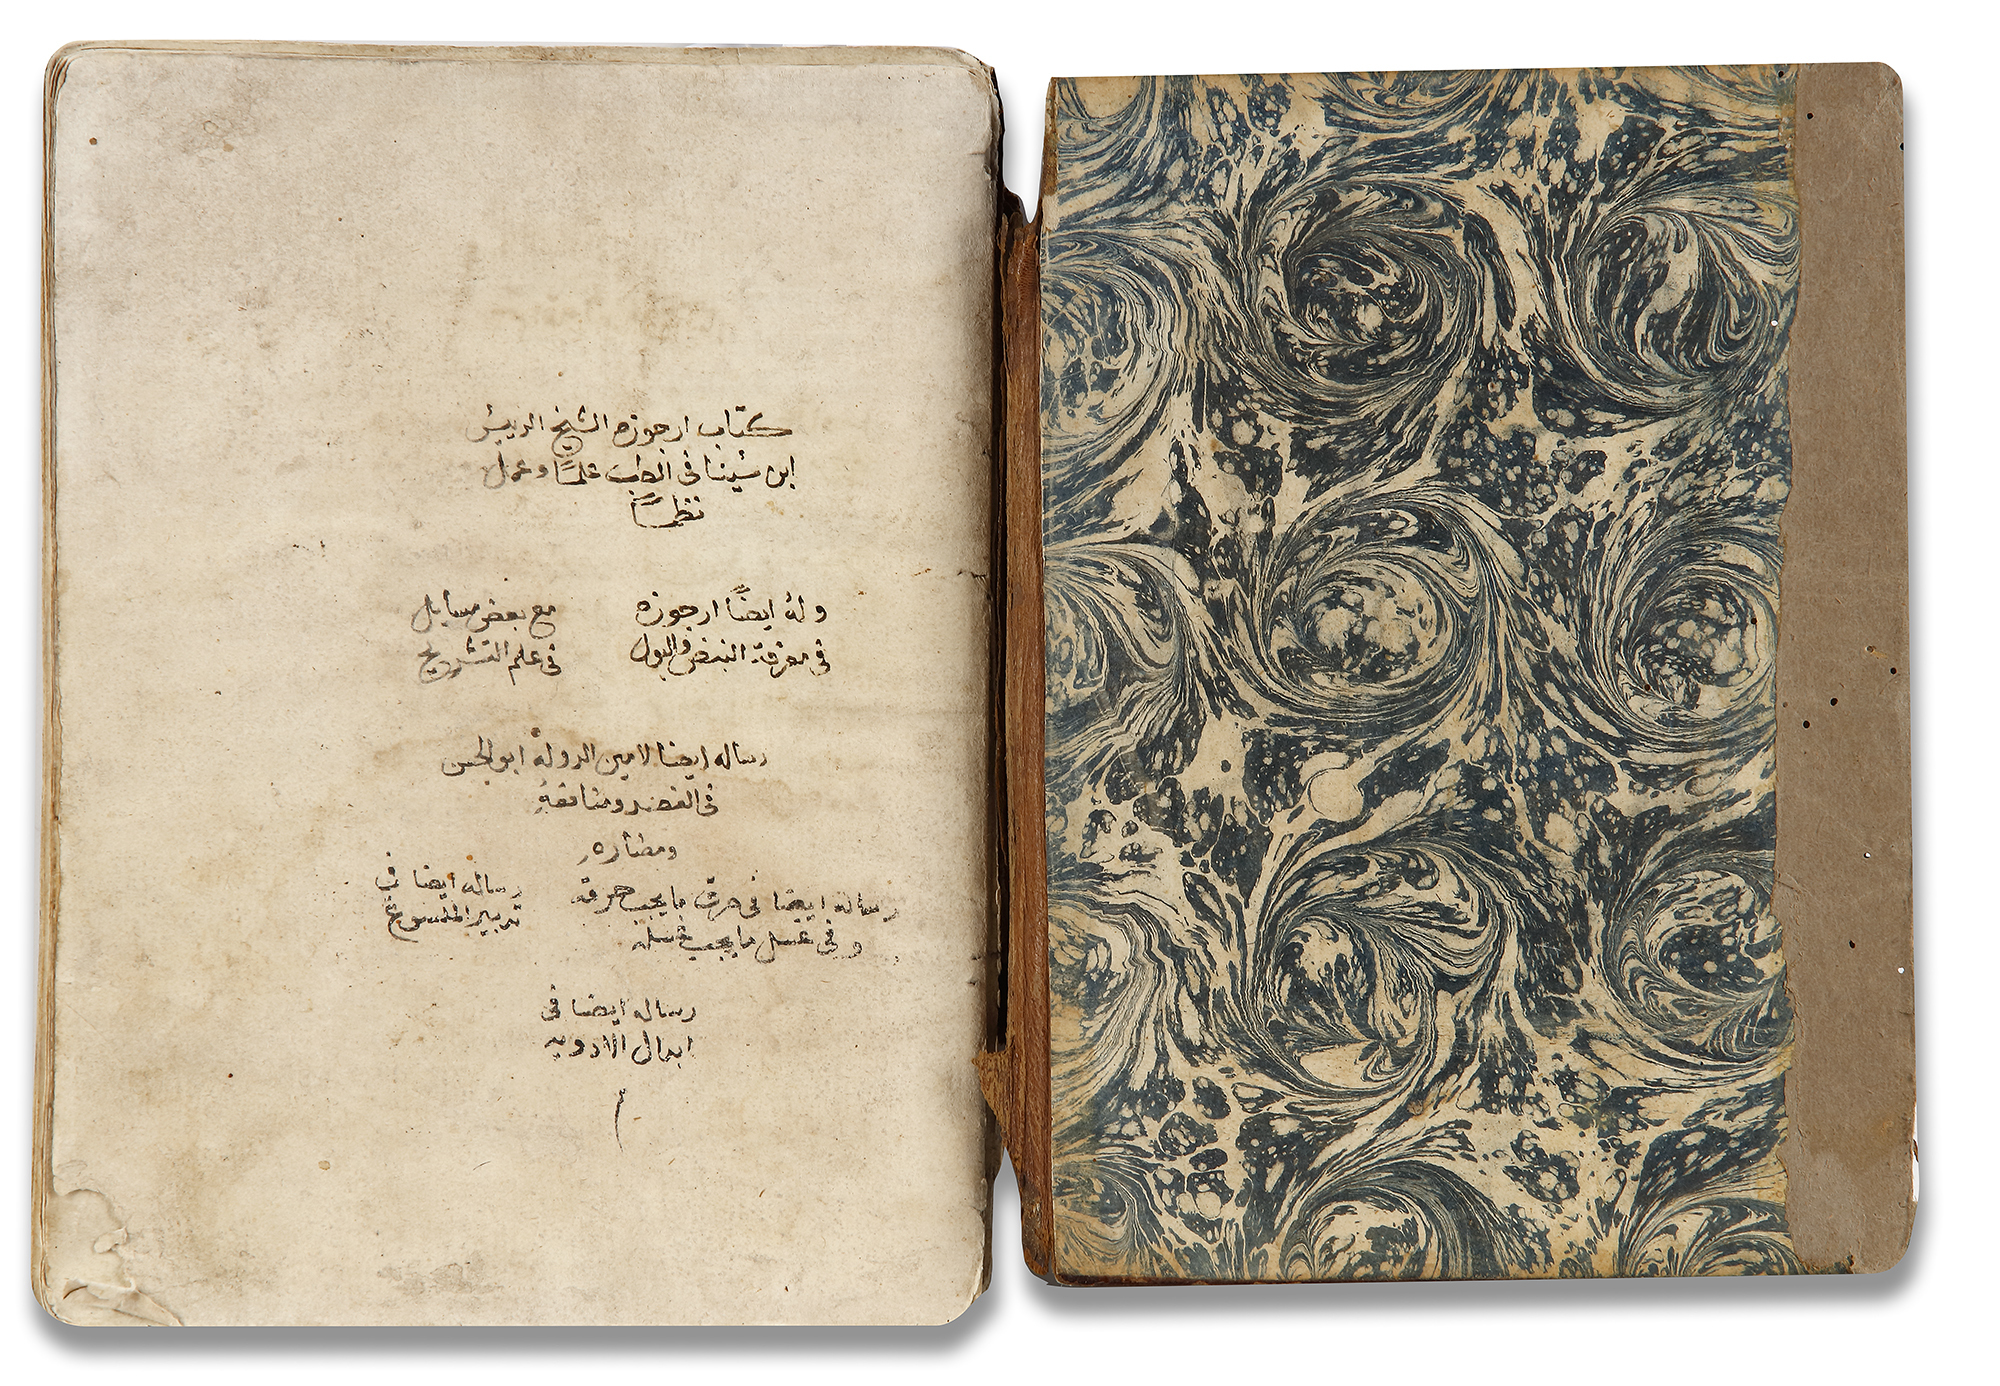 كتاب ارجوزه الشيخ الرييس
ابن سينا في الطب علمًا وعمل
نظمًا
وله ايضًا ارجوزه
في معرفة النبض والبول
مع بعض مسايل
في علم التشريح
رساله ايضا لامين الدولة ابو الحسن
في الفصد ومنافعه
ومضاره
رساله ايضا في حرق ما يجب حرقه
و في غسل ما يجب غسله
رساله ايضا في
تدبير الملسوع
رساله ايضا في
ابدال الادويه